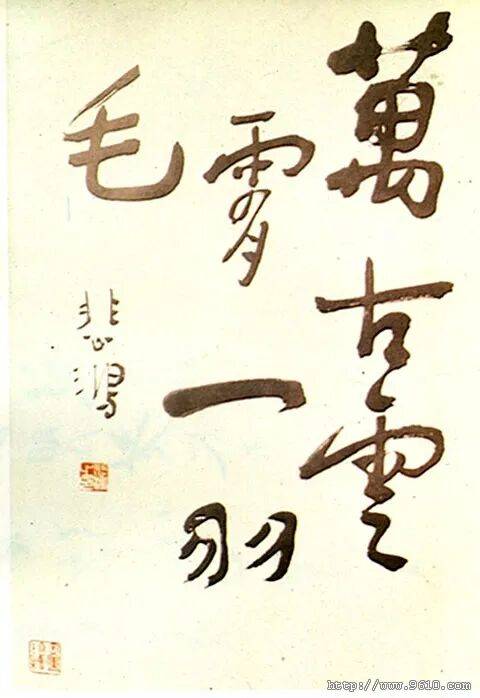 萬古雲
霄一羽
毛
悲鴻
http://www.9610.com